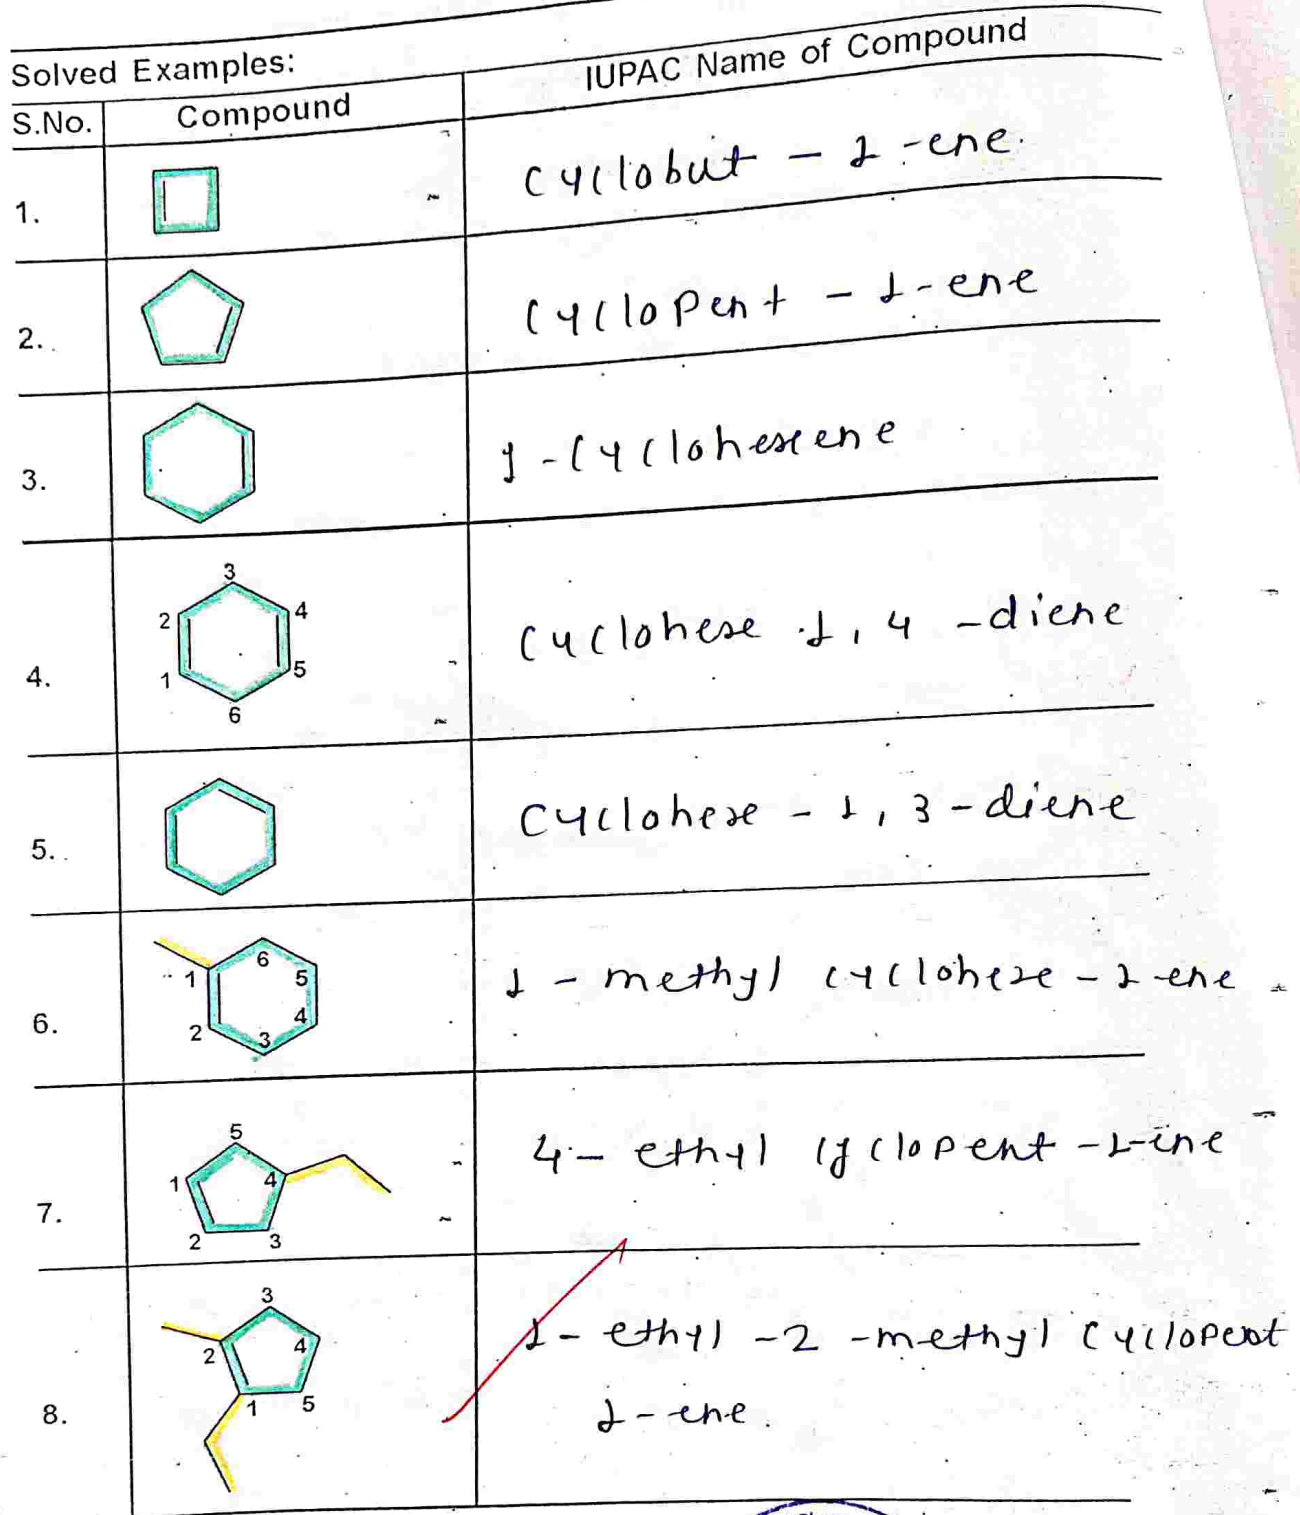 Solved Examples:
S.No. Compound IUPAC Name of Compound
1. Cyclobut - 1 - ene.
2. Cyclopent - 1 - ene
3. 1 - Cyclohexene
3
2 4
4. 1 5 Cyclohexe 1, 4 - diene
6
5. Cyclohexe - 1, 3 - diene
6
1 5
6. 2 4 1 - methyl cyclohexe - 1 ene
3
5
1 4
7. 2 3 4 - ethyl cyclopent - 1 - ene
3
2 4
8. 1 5 1 - ethyl - 2 - methyl cyclopent
1 - ene.